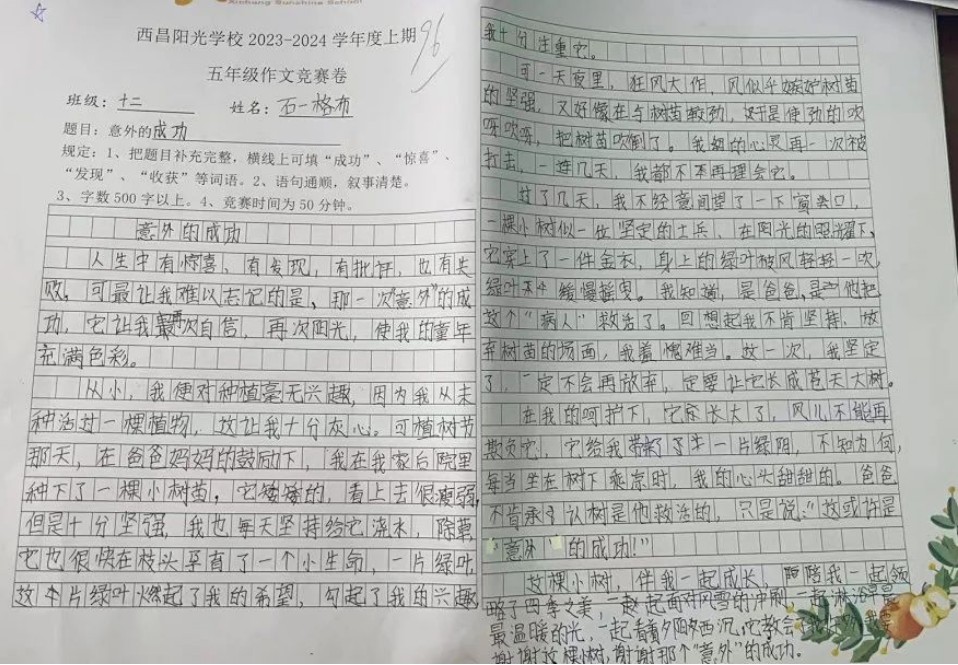 Sunshine School
西昌阳光学校 2023-2024 学年度上期
96
五年级作文竞赛卷
班级：十二 姓名：石一格布
题目：意外的成功
规定：1、把题目补充完整，横线上可填“成功”、“惊喜”、
“发现”、“收获”等词语。2、语句通顺，叙事清楚。
3、字数 500 字以上。4、竞赛时间为 50 分钟。
意外的成功
人生中有惊喜、有发现，有批评，也有失
败，可最让我难以忘记的是、那一次“意外”的成
功，它让我再次自信，再次阳光，使我的童年
充满色彩。
从小，我便对种植毫无兴趣，因为我从未
种活过一棵植物，这让我十分灰心。可植树节
那天，在爸爸妈妈的鼓励下，我在我家后院里
种下了一棵小树苗，它矮矮的，看上去很瘦弱，
但是十分坚强，我也每天坚持给它浇水，除草，
它也很快在枝头孕育了一个小生命，一片绿叶，
这片绿叶燃起了我的希望，勾起了我的兴趣
我十分注重它。
可一天夜里，狂风大作，风似乎嫉妒树苗
的坚强，又好像在与树苗较劲，于是使劲的吹
呀吹呀，把树苗吹倒了。我的心灵再一次被
打击，一连几天，我都不再理会它。
过了几天，我不经意间望了一下窗口，
一棵小树似一位坚定的士兵、在阳光的照耀下，
它穿上了一件金衣，身上的绿叶被风轻轻一吹，
绿叶缓慢摇曳。我知道，是爸爸，是他把
这个“病人”救活了。回想起我不肯坚持，放
弃树苗的场面，我羞愧难当。这一次，我坚定
了，一定不会再放弃，定要让它长成苍天大树。
在我的呵护下，它长大了，风儿不能再
欺负它，它给我带来了一片绿阴，不知为何，
每当坐在树下乘凉时，我的心头甜甜的。爸爸
不肯承认树是他救活的，只是说：“这或许是
“意外”的成功！”
这棵小树，伴我一起成长，陪我一起领
略了四季之美，一起面对风雪的冲刷，一起沐浴早晨
最温暖的光，一起看着夕阳西沉，它教会
谢谢这棵树，谢谢那个“意外”的成功。